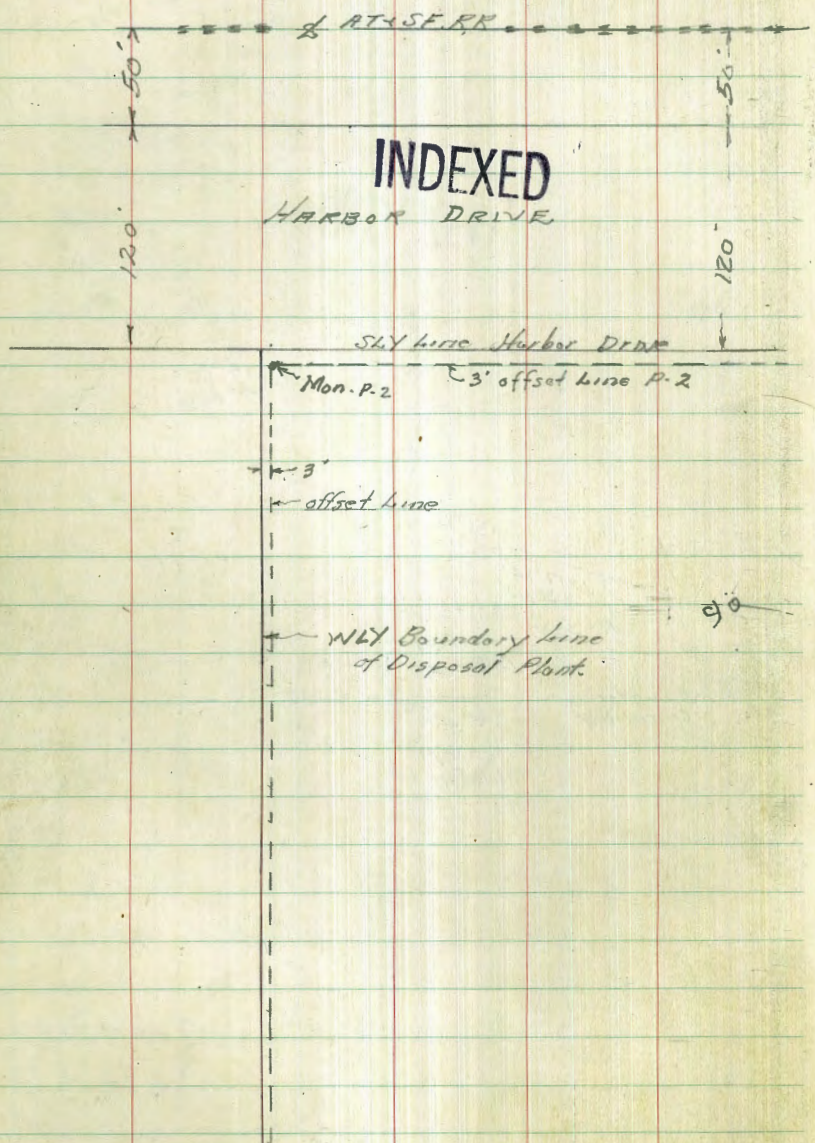 ℄ AT&SF. RR
50'
50'
INDEXED
HARBOR DRIVE
120'
120'
SLY Line Harbor Drive
Mon. P-2
3' offset Line P-2
3'
offset Line
WLY Boundary Line
of Disposal Plant.